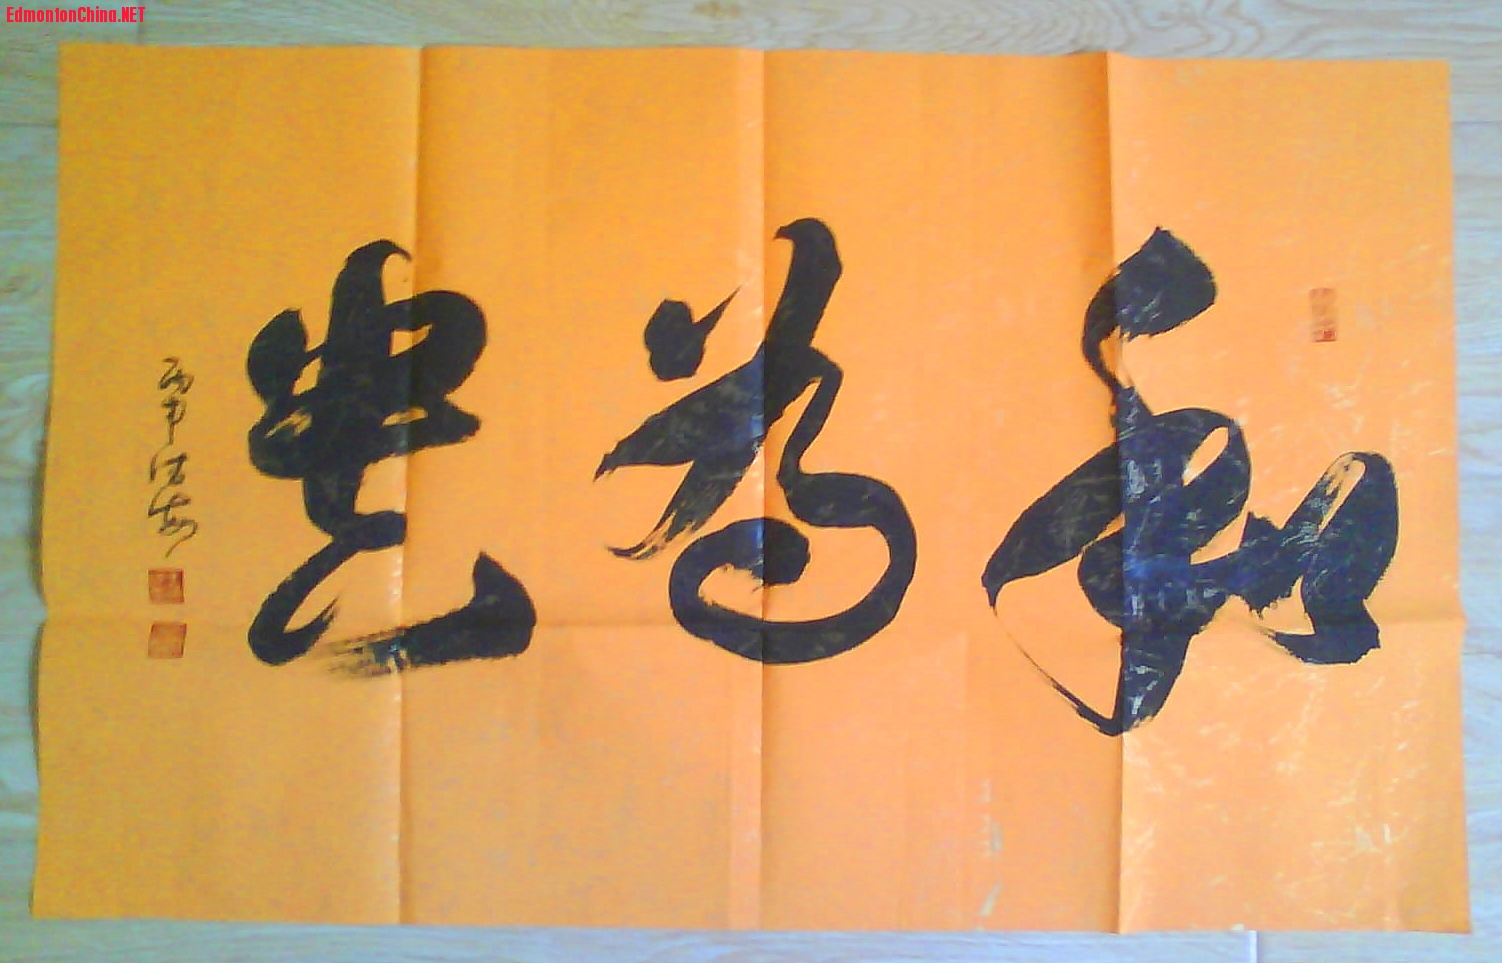 EdmontonChina.NET
和為貴
丙申